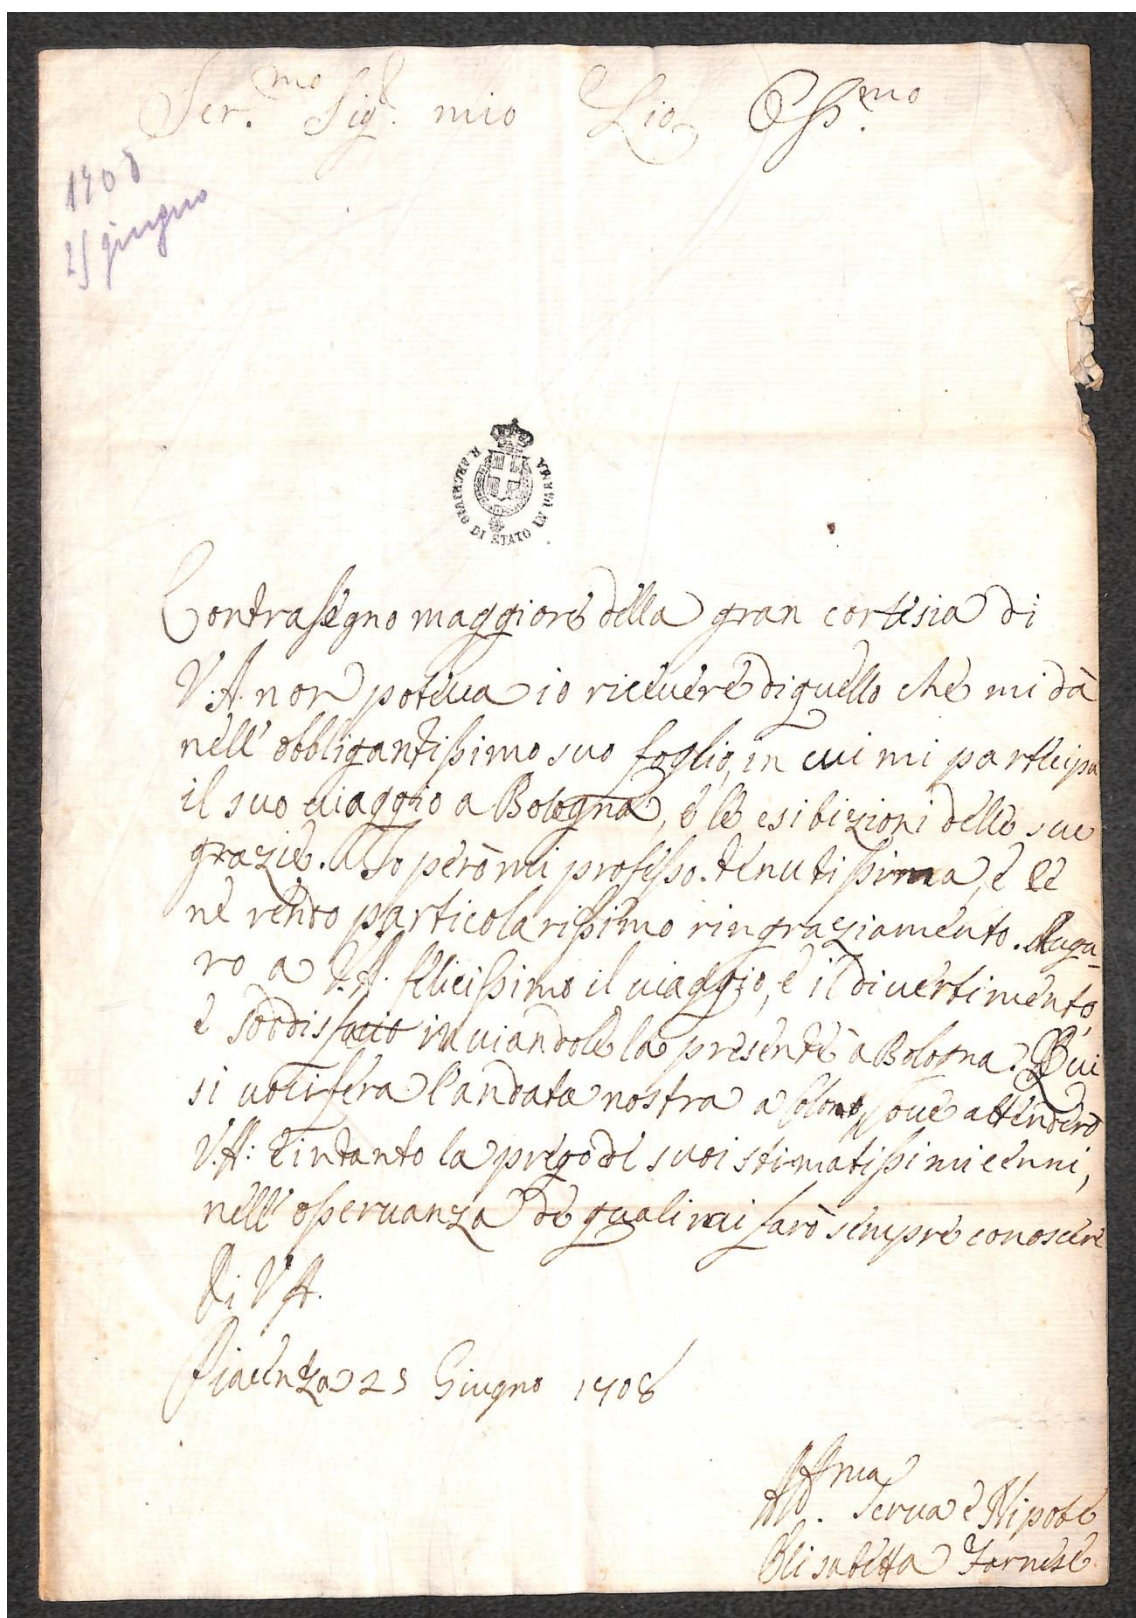 Ser.mo Sig.r mio Zio Oss.mo
1708
25 giugno
R. ARCHIVIO DI STATO IN PARMA
Contrasegno maggiore della gran cortesia di
V.A. non poteva io ricevere di quello che mi dà
nell' obbligantissimo suo foglio, in cui mi partecipa
il suo viaggio a Bologna, e le esibizioni delle sue
grazie. Io però mi professo tenutissima, e le
ne rendo particolarissimo ringraziamento. Augu-
ro a V.A. felicissimo il viaggio, e il divertimento,
e soddisfaccio inviandole la presente à Bologna. Qui
si vocifera l'andata nostra a Colorno, ove attenderò
V.A: e intanto la prego de suoi stimatissimi cenni,
nell' osservanza de quali mi farò sempre conoscere
Di V.A.
Piacenza 25 Giugno 1708
Aff.ma Serva e Nipote
Elisabetta Farnese